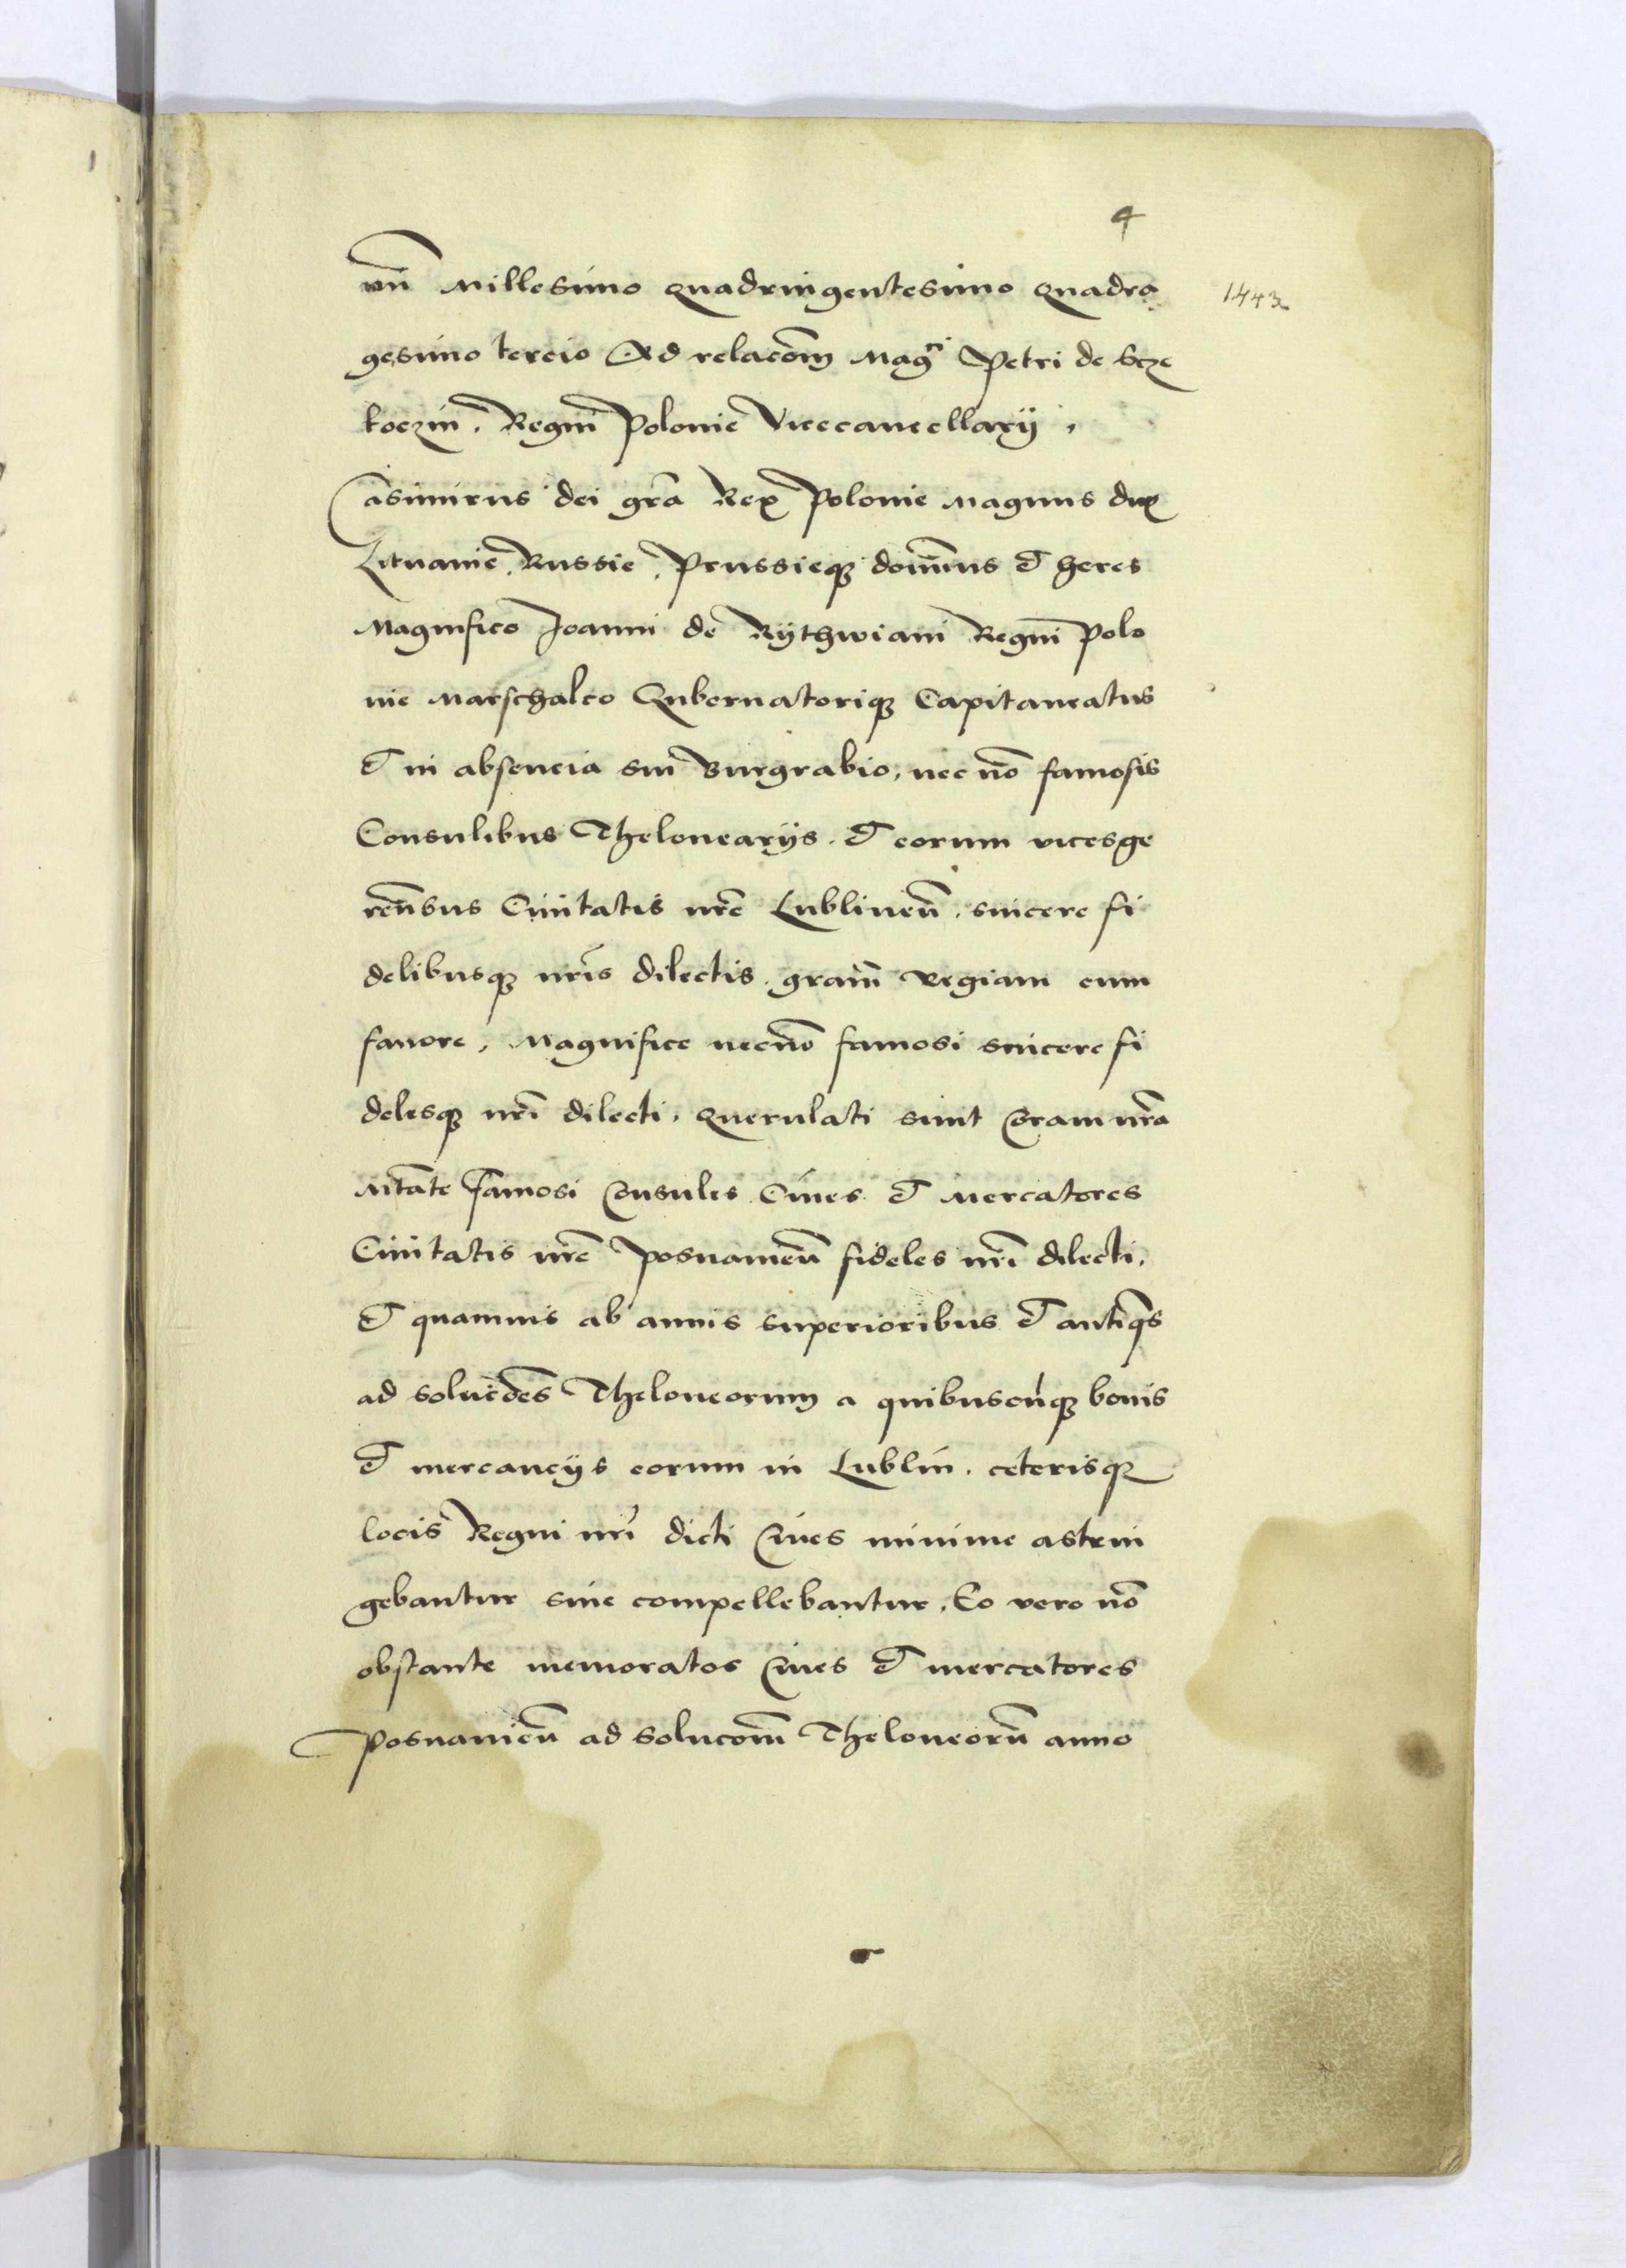 4
vñ Millesimo quadringentesimo quadra 1443
gesimo tercio Ad relacōm Magci Petri de Scze
koczin. Regni Polonie Vicecancellarij.
Casimirus dei grā Rex Polonie Magnus dux
Lituanie. Russie. Prussieq; dominus et heres
Magnifico Joanni de Rÿthwiani Regni Polo
nie Marschalco Gubernatoriq; Capitaneatus
et in absencia sui Burgrabio, nec nō famosis
Consulibus Thelonearijs. et eorum vicesge
rentibus Ciuitatis nrē Lublineñ. sincere fi
delibusq; nrīs dilectis. gram̄ regiam cum
fauore, Magnifice necnō famosi sincere fi
delesq; nrī dilecti. querulati sunt Coram nrā
Mtāte famosi Consules Ciues et Mercatores
Ciuitatis nrē Posnanieñ fideles nrī dilecti.
et quamuis ab annis superioribus et antiqs
ad solucōes Theloneorum a quibuscūq; bonis
et mercancijs eorum in Lublin. ceterisq;
locis Regni nrī dicti Ciues minime astrin
gebantur siue compellebantur. Eo vero nō
obstante memoratos Ciues et mercatores
Posnanieñ ad solucōm Theloneorū anno